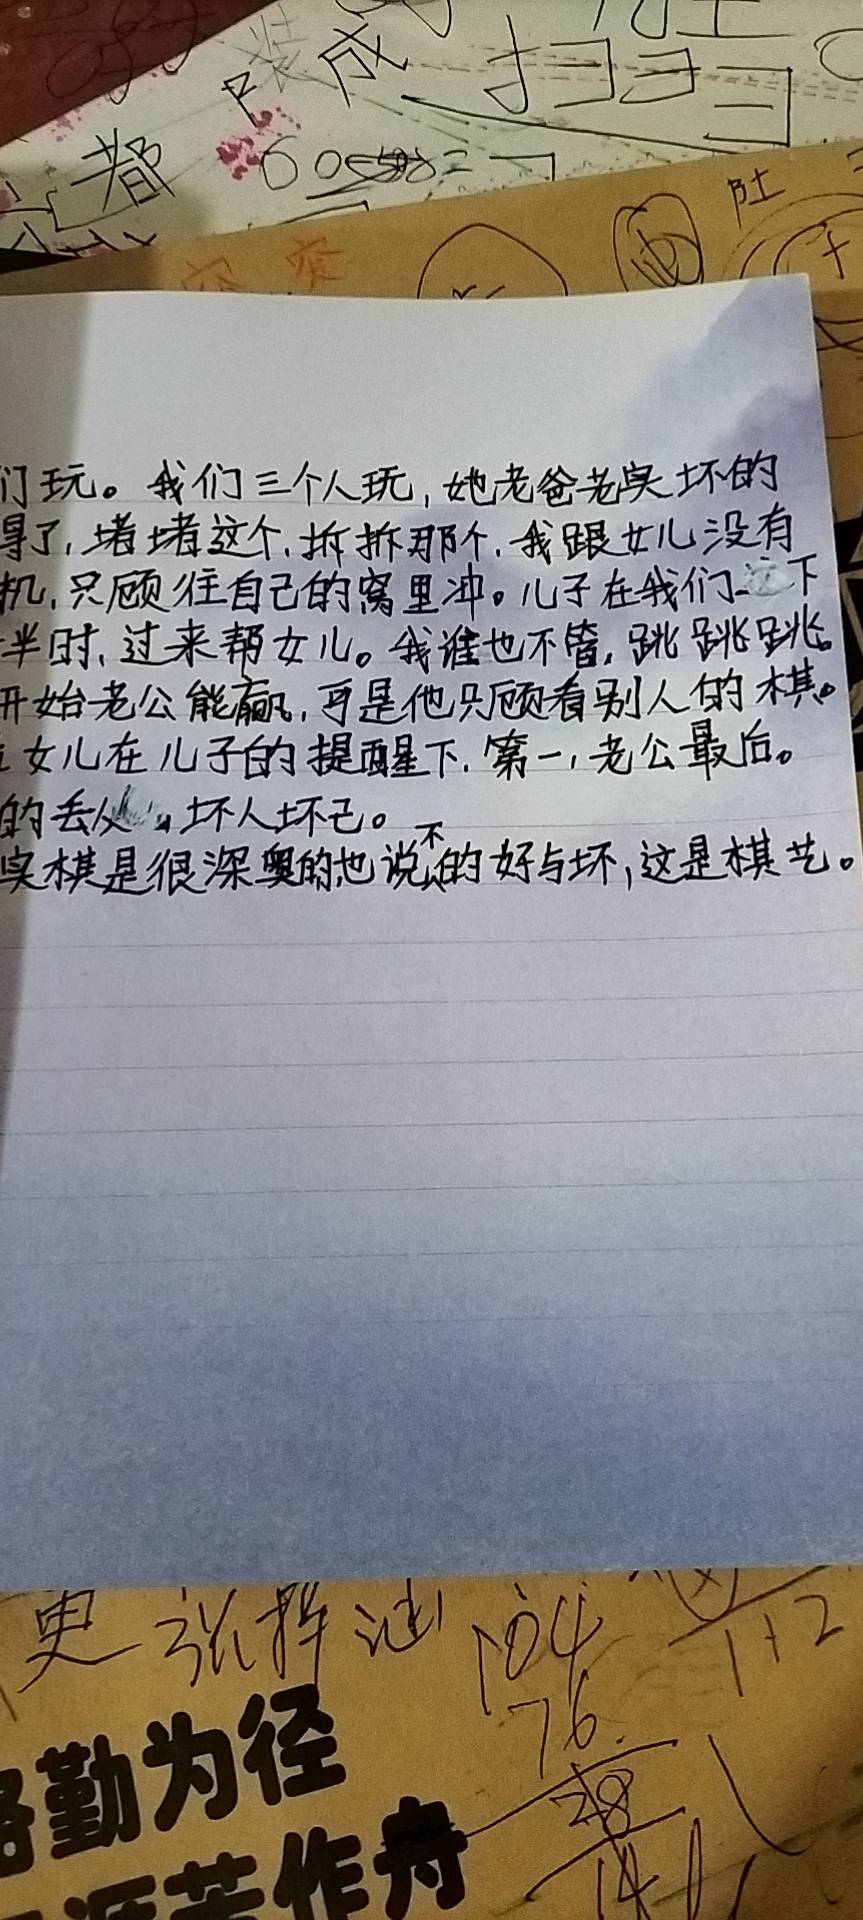 都 成
们玩。我们三个人玩,她老爸老实坏的
得了,堵堵这个,拆拆那个,我跟女儿没有
机,只顾往自己的窝里冲。儿子在我们 下
半时,过来帮女儿。我谁也不管,跳跳跳。
开始老公能赢,可是他只顾看别人的棋。
女儿在儿子的提醒下,第一,老公最后。
的丢人 坏人坏己。
实棋是很深奥的,也说不 的好与坏,这是棋艺。
更 张梓涵 104
1+2
76
28
14
路勤为径
涯苦作舟